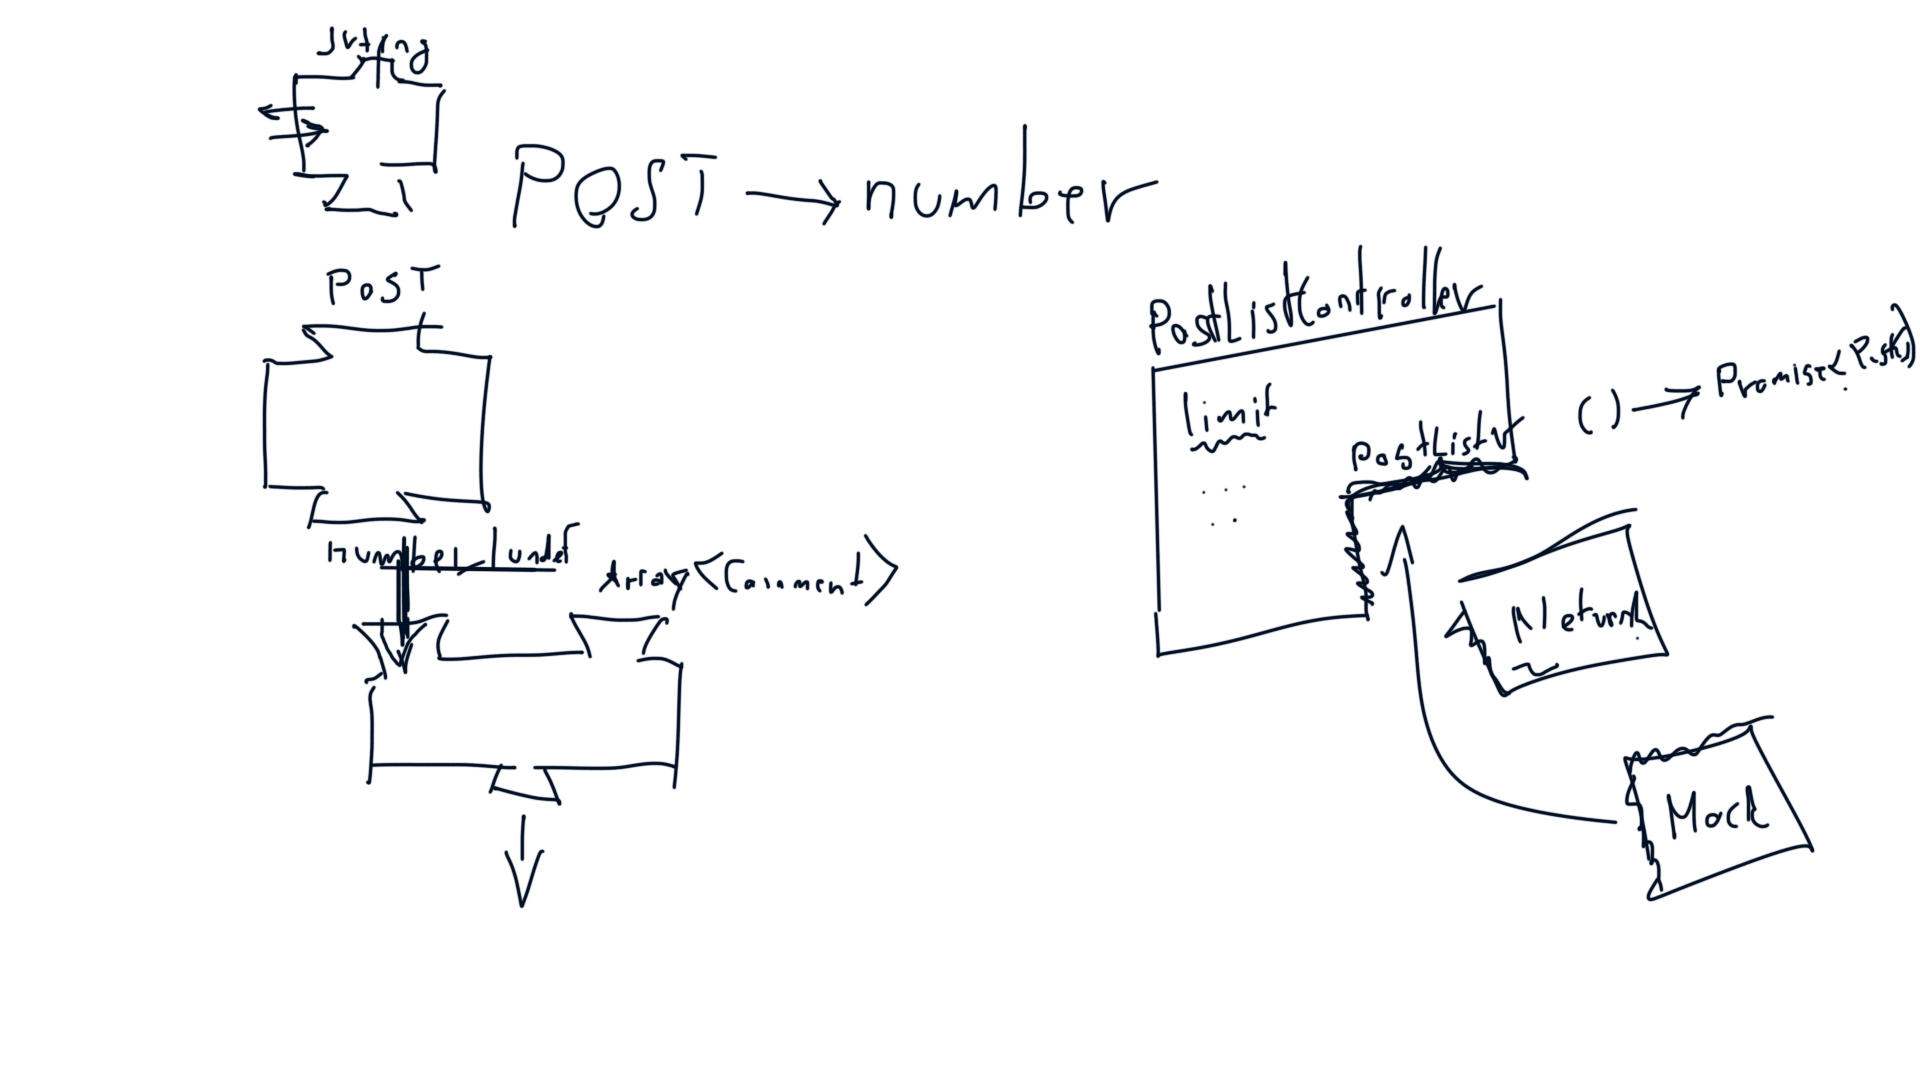 String
POST → number
POST
number | undef
Array<Comment>
PostListController
limit
PostListv
() → Promise<Posts>
Network
Mock